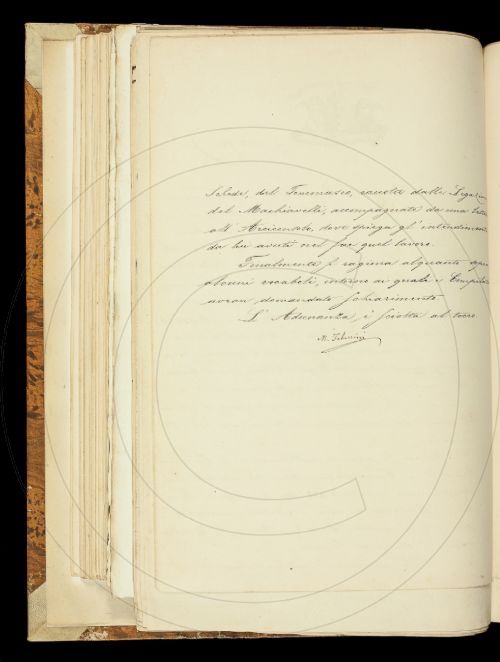 Schede, del Tommaseo, cavate dalle Legazioni
del Machiavelli, accompagnate da una Lettera
all' Arciconsolo, dove spiega gl' intendimenti
da lui avuti nel far quel lavoro.
Finalmente si ragiona alquanto sopra
alcuni vocaboli, intorno ai quali i Compilatori
avean domandato schiarimento
L' Adunanza, è sciolta al tocco.